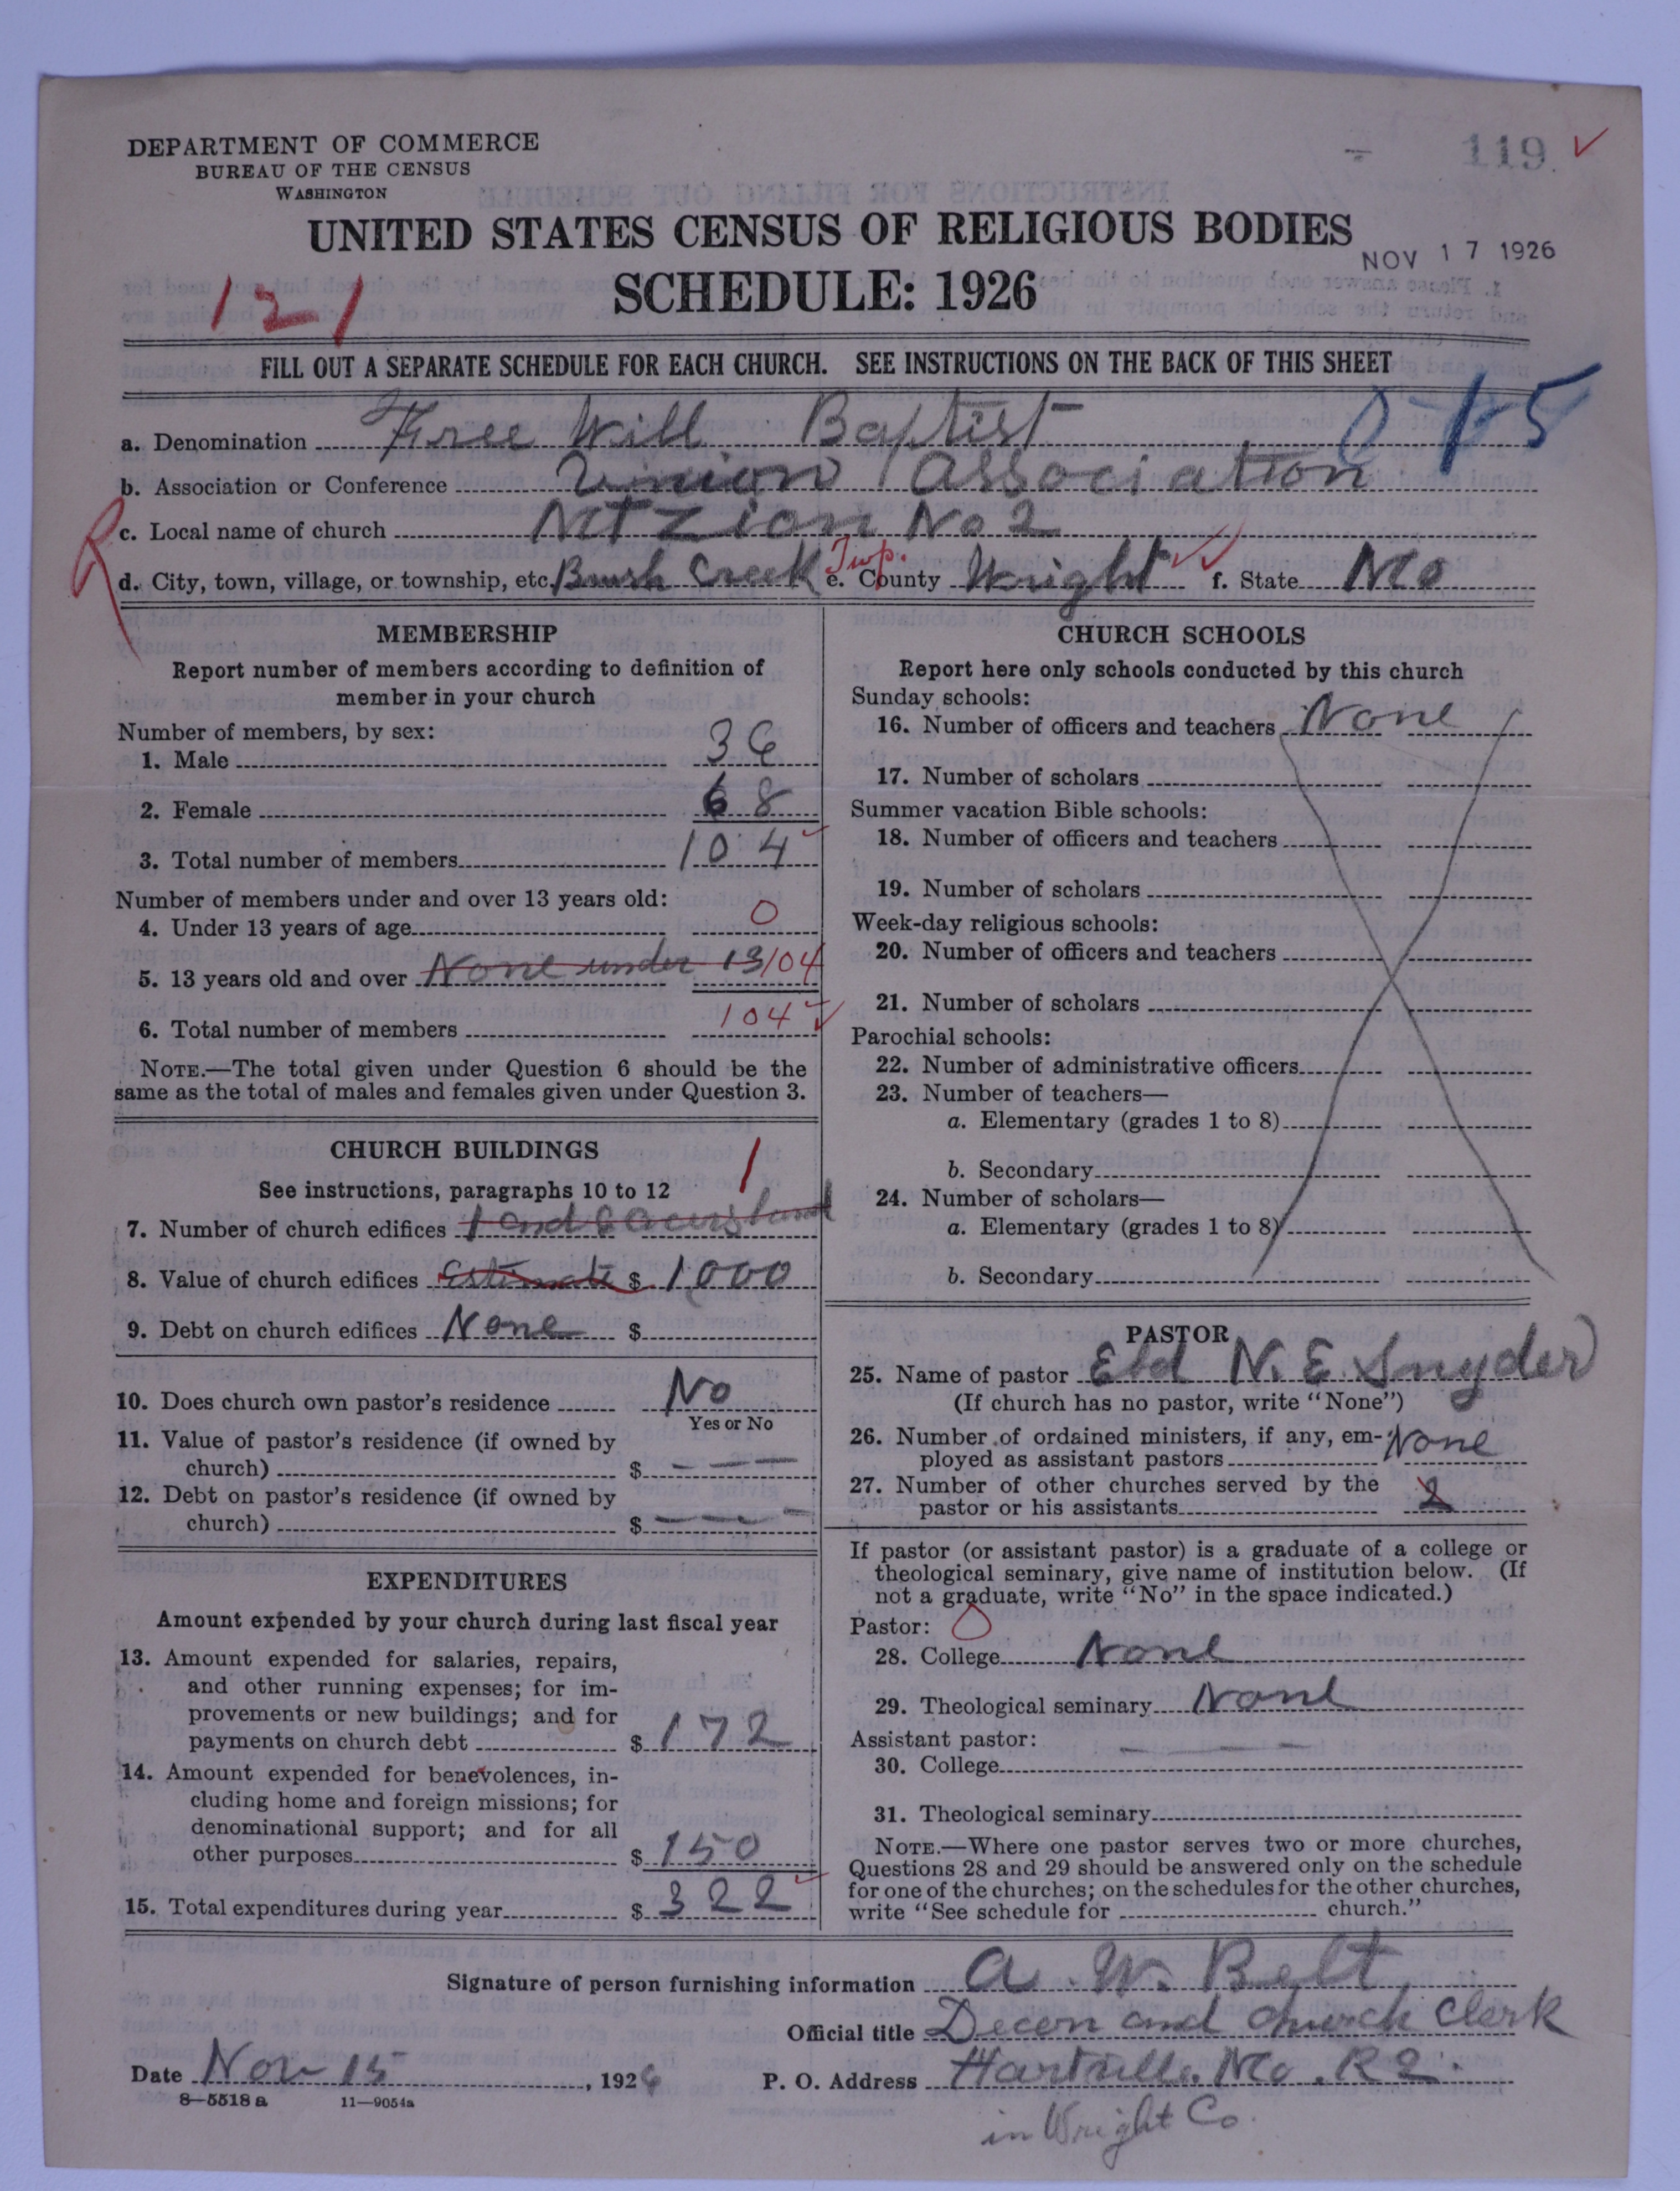 DEPARTMENT OF COMMERCE
BUREAU OF THE CENSUS
WASHINGTON
119
UNITED STATES CENSUS OF RELIGIOUS BODIES
NOV 17 1926
SCHEDULE: 1926
121
FILL OUT A SEPARATE SCHEDULE FOR EACH CHURCH. SEE INSTRUCTIONS ON THE BACK OF THIS SHEET
a. Denomination Free Will Baptist
b. Association or Conference Union Association
c. Local name of church Mt Zion No 2
d. City, town, village, or township, etc. Brush Creek Twp. e. County Wright f. State Mo
MEMBERSHIP
Report number of members according to definition of
member in your church
Number of members, by sex:
1. Male 36
2. Female 68
3. Total number of members 104
Number of members under and over 13 years old:
4. Under 13 years of age 0
5. 13 years old and over None under 13 104
6. Total number of members 104
NOTE.—The total given under Question 6 should be the
same as the total of males and females given under Question 3.
CHURCH BUILDINGS
See instructions, paragraphs 10 to 12 1
7. Number of church edifices 1 and
8. Value of church edifices Estimate $ 1000
9. Debt on church edifices None $
10. Does church own pastor's residence No
Yes or No
11. Value of pastor's residence (if owned by
church) $ — — —
12. Debt on pastor's residence (if owned by
church) $ — — —
EXPENDITURES
Amount expended by your church during last fiscal year
13. Amount expended for salaries, repairs,
and other running expenses; for im-
provements or new buildings; and for
payments on church debt $ 172
14. Amount expended for benevolences, in-
cluding home and foreign missions; for
denominational support; and for all
other purposes $ 150
15. Total expenditures during year $ 322
CHURCH SCHOOLS
Report here only schools conducted by this church
Sunday schools:
16. Number of officers and teachers None
17. Number of scholars
Summer vacation Bible schools:
18. Number of officers and teachers
19. Number of scholars
Week-day religious schools:
20. Number of officers and teachers
21. Number of scholars
Parochial schools:
22. Number of administrative officers
23. Number of teachers—
a. Elementary (grades 1 to 8)
b. Secondary
24. Number of scholars—
a. Elementary (grades 1 to 8)
b. Secondary
PASTOR
25. Name of pastor Eld N. E. Snyder
(If church has no pastor, write "None")
26. Number of ordained ministers, if any, em-
ployed as assistant pastors None
27. Number of other churches served by the
pastor or his assistants 2
If pastor (or assistant pastor) is a graduate of a college or
theological seminary, give name of institution below. (If
not a graduate, write "No" in the space indicated.)
Pastor: 0
28. College None
29. Theological seminary None
Assistant pastor: — — —
30. College
31. Theological seminary
NOTE.—Where one pastor serves two or more churches,
Questions 28 and 29 should be answered only on the schedule
for one of the churches; on the schedules for the other churches,
write "See schedule for church."
Signature of person furnishing information A. W. Belt
Official title Decon and church Clerk
Date Nov 15, 1926 P. O. Address Hartville. Mo. R 2.
8—5518 a 11—9054a
in Wright Co.